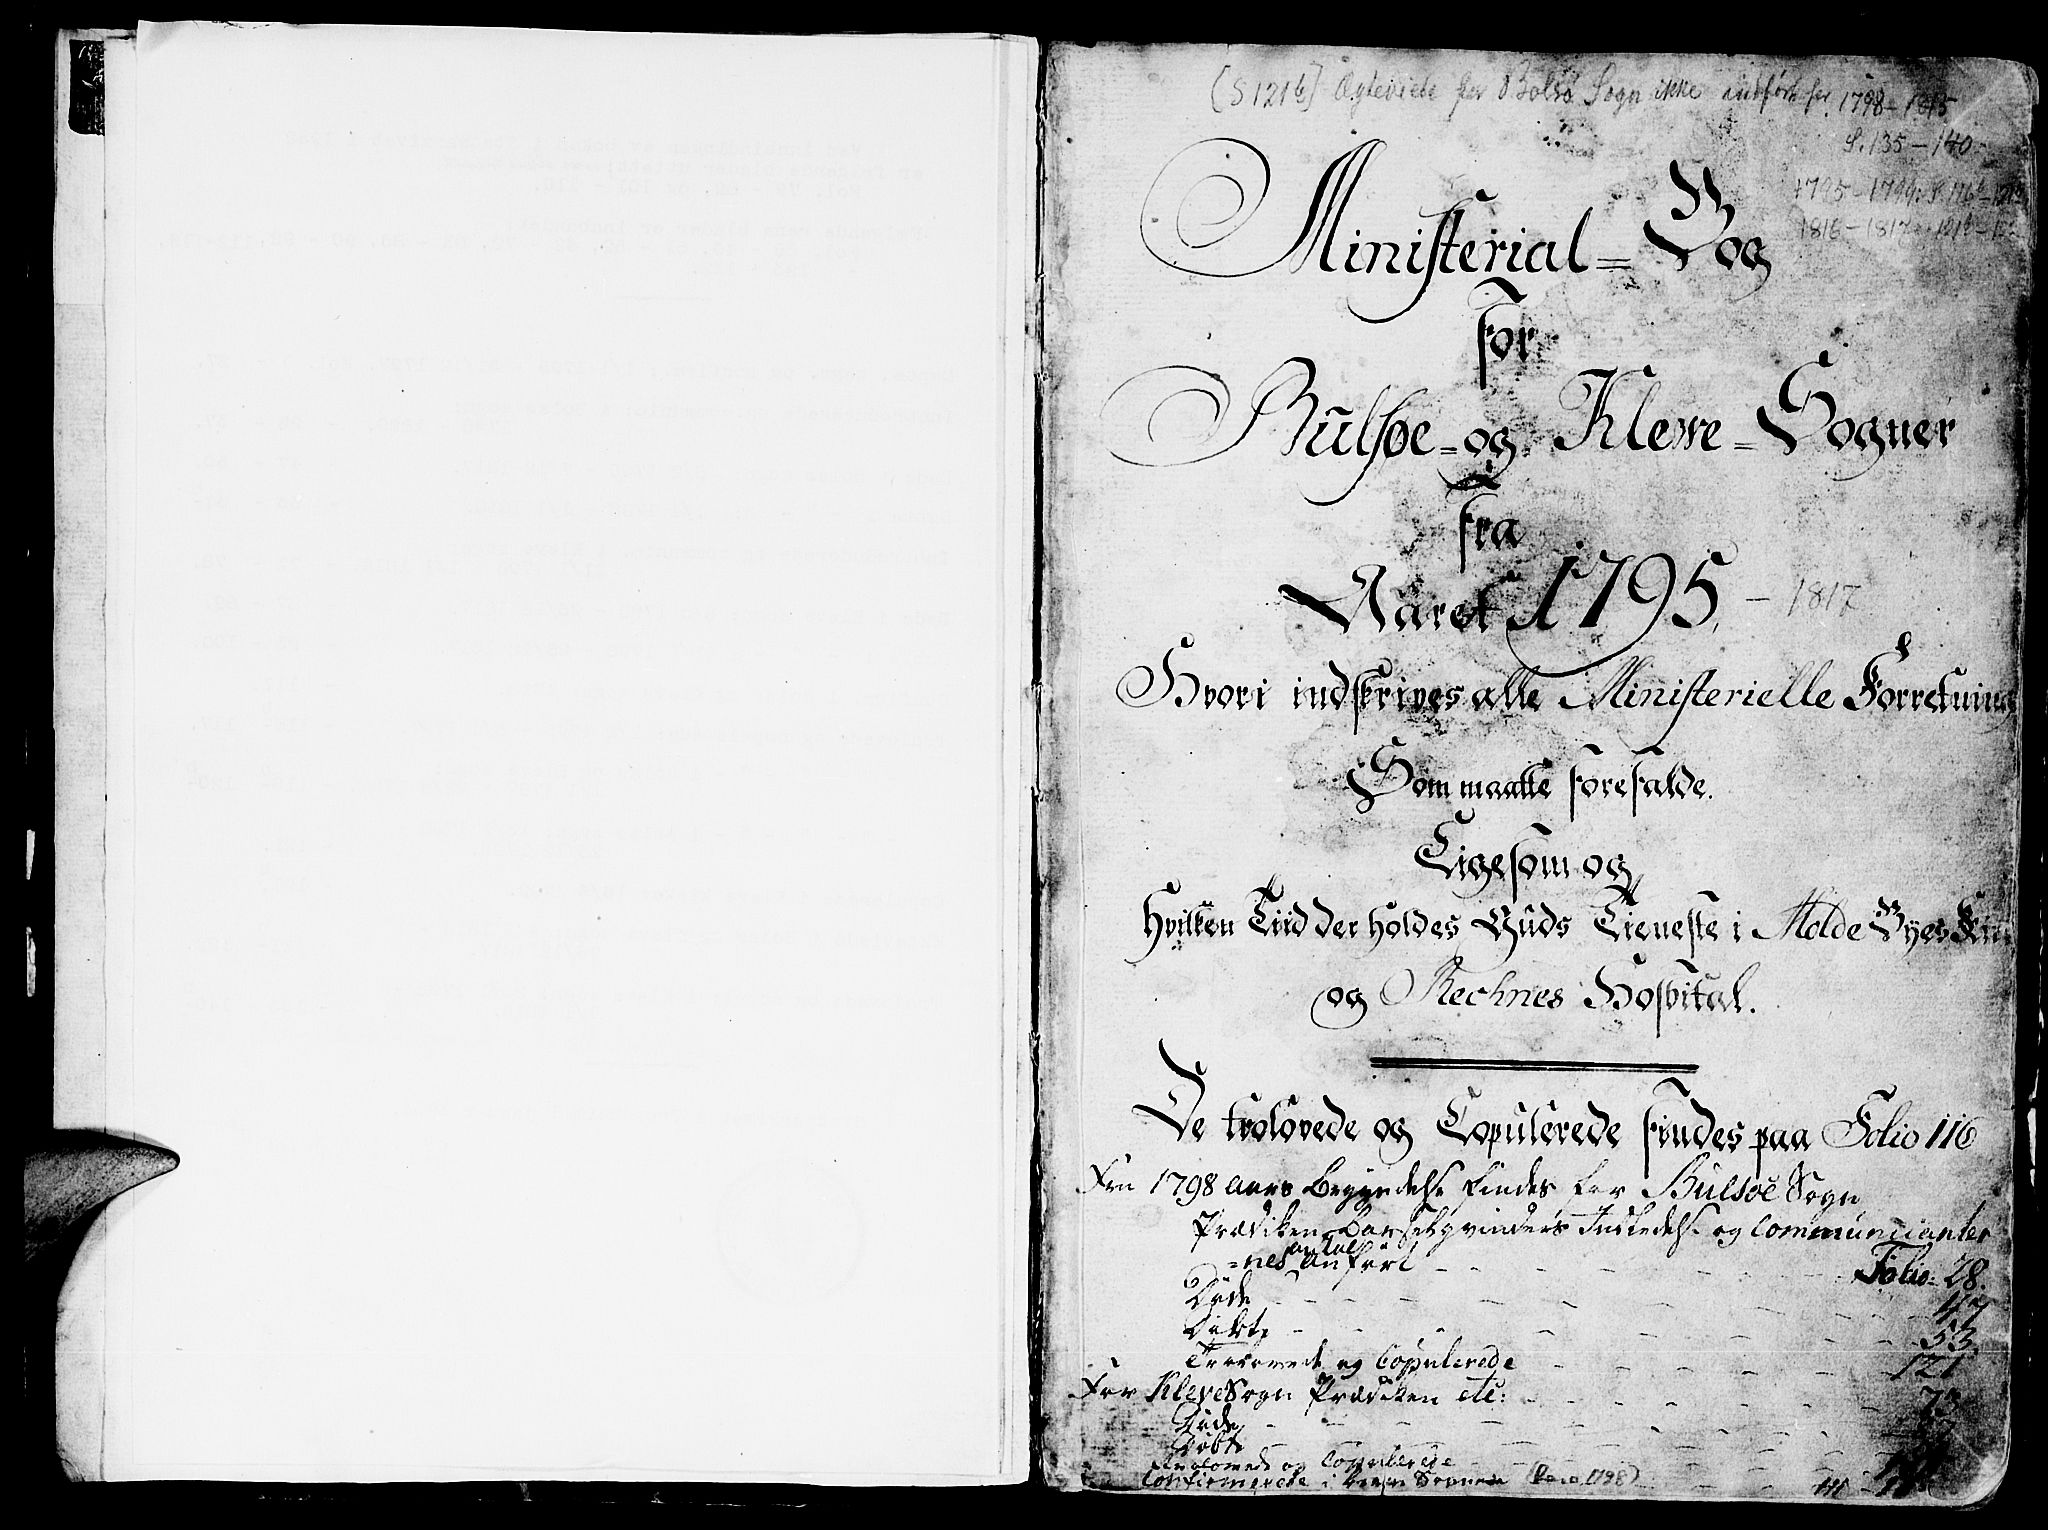 [S 121b] Ægteviede for Bolsø Sogn ikke indført før 1798-1815
S. 135-140
1795-1799: S 116b-121
1816-1817
Ministerial=Bog
For
Bülsøe- og Klewe=Sogner
Fra
Aaret 1795, - 1817
Hvori indskrives alle Ministerielle Forretning
Som maatte forefalde.
Ligesom og
Hvilken Tiid der holdes Guds Tieneste i Molde Byes
og Recknes Hospital.
De trolovede og Copulerede findes paa Folio 116
Fra 1798 Aars Begyndelse findes for Bülsøe Sogn
Prædiken Barselqvinders Indledelse og Communicanter
=nes antal anført Folio: 28.
Døde 47
Døbte 53
Trolovede og Copulerede 121
For Kleve Sogn Prædiken etc: 73
Døde
Døbte
Trolovede og Copulerede
Confirmerede i begge Sognene 111